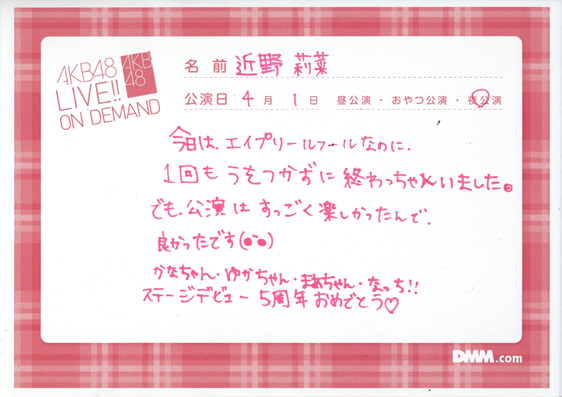 AKB48
LIVE!!
ON DEMAND
AKB
48
名前 近野 莉菜
公演日 4月 1日 昼公演・おやつ公演・夜公演
今日は、エイプリールフールなのに、
1回もうそつかずに終わっちゃいました。
でも、公演はすっごく楽しかったんで、
良かったです(●ω●)
かなちゃん・ゆかちゃん・まあちゃん・なっち!!
ステージデビュー 5周年おめでとう♡
DMM.com